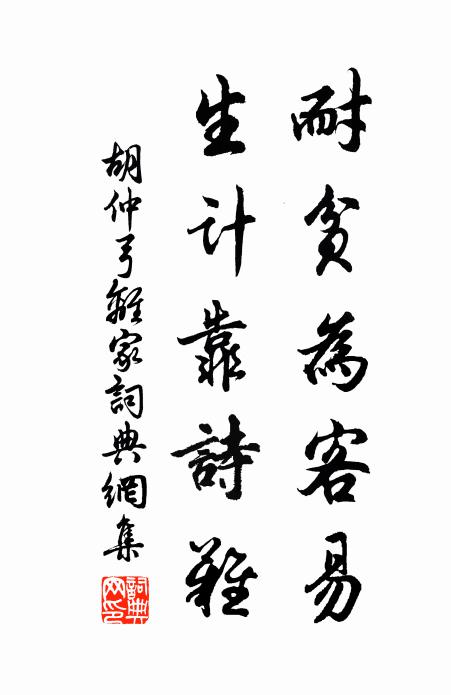 耐貧為客易
生計靠詩難
胡仲弓離家詞典網集
詞典
網印